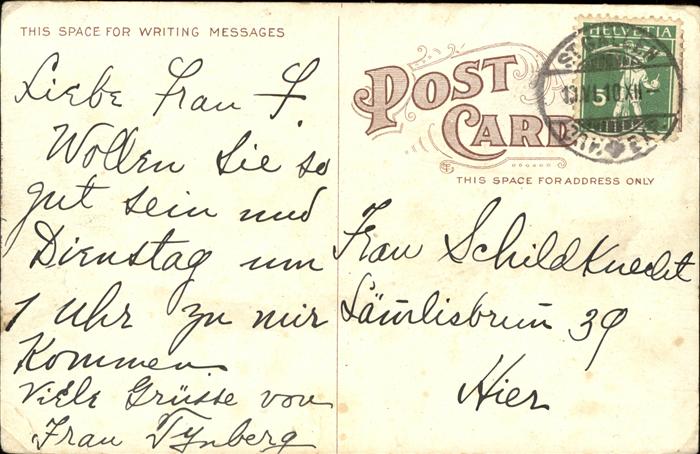 THIS SPACE FOR WRITING MESSAGES
Liebe Frau
Wollen Sie so
gut sein und
Dienstag um
1 Uhr zu mir
Kommen
Viele Grüsse von
Frau Tynberg
POST
CARD
THIS SPACE FOR ADDRESS ONLY
HELVETIA
5
Frau Schildknecht
39
Hier